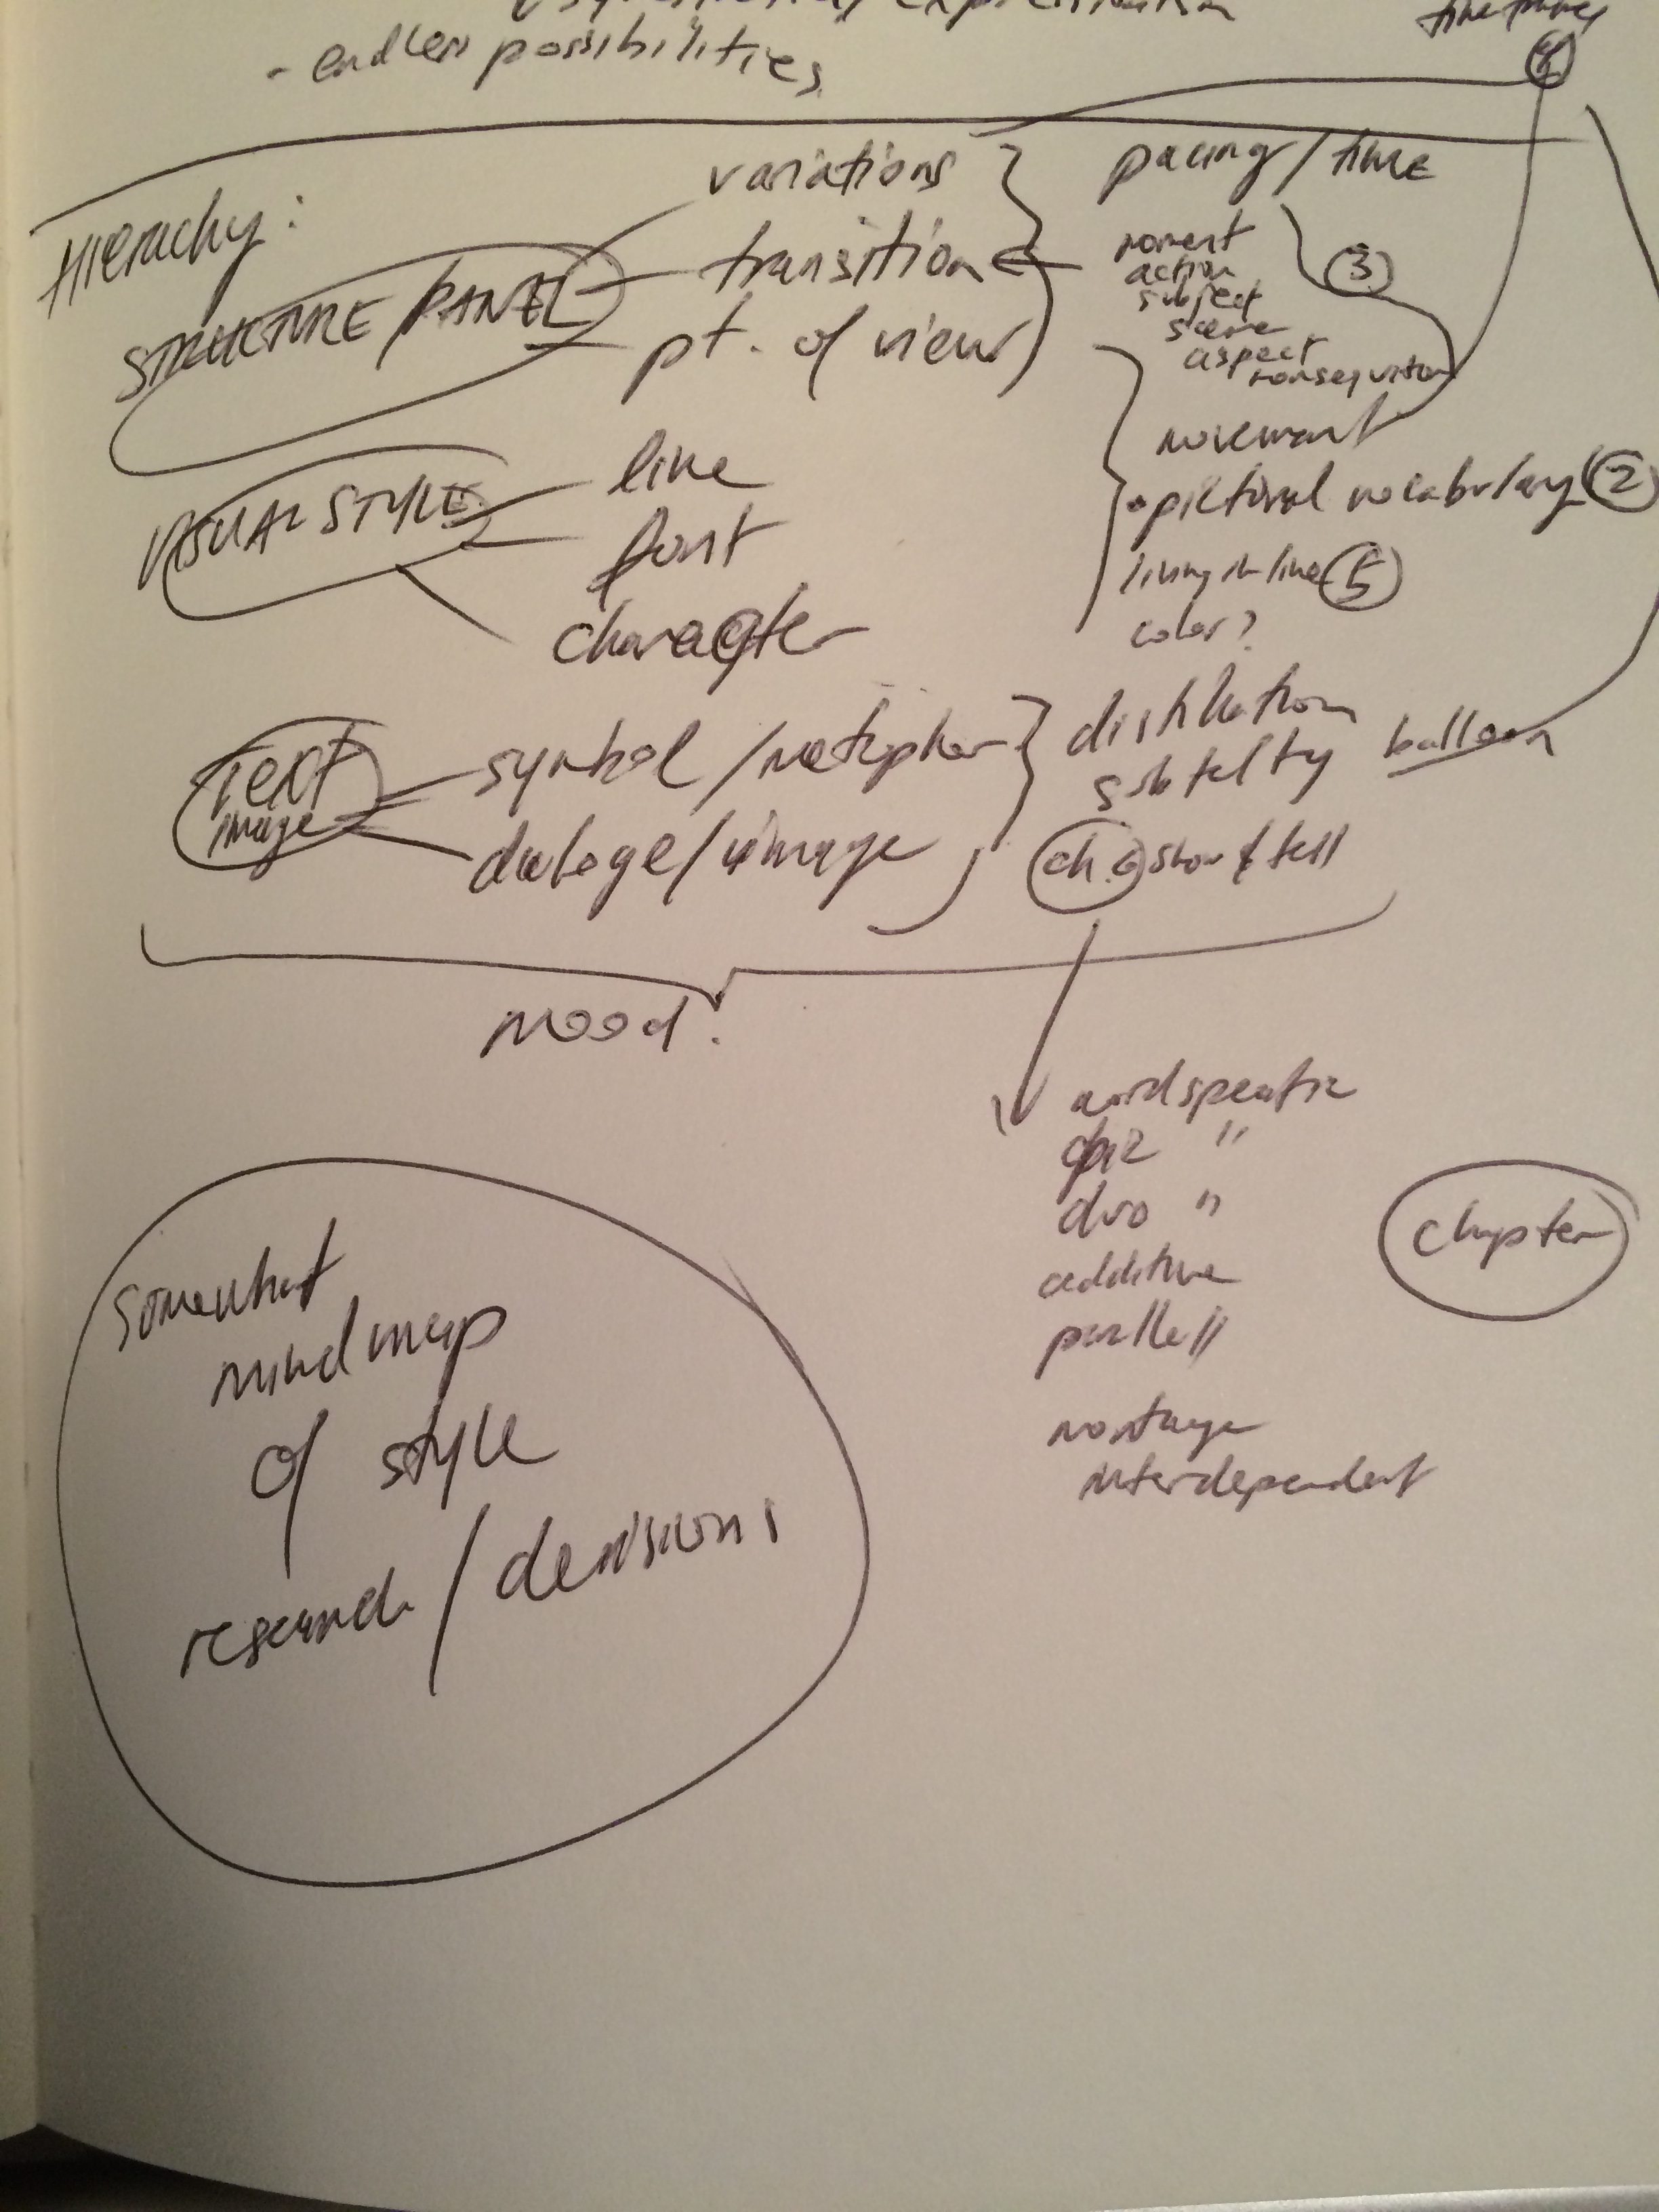 - endless possibilities
Hierachy:
STRUCTURE/PANEL
variations
transition
pt. of view
pacing/time
moment
action
subject
scene
aspect
3
movement
pictural vocabulary 2
living in line 5
color?
VISUAL STYLE
line
font
character
Text
image
symbol/metapher
dialoge/image
distillation
subtelty balloon
ch. 6 show & tell
mood.
wordspecific
duo "
additive
parallell
montage
interdependent
chapter
Somewhat
mindmap
of style
research/decisions